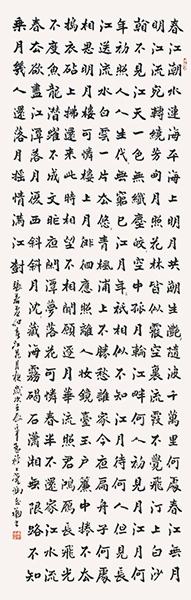 春江潮水連海平海上明月共潮生灩灩隨波千萬里何處春江無月
明江流宛轉繞芳甸月照花林皆似霰空裏流霜不覺飛汀上白沙
看不見江天一色無纖塵皎皎空中孤月輪江畔何人初見月江月何
年初照人人生代代無窮已江月年年祗相似不知江月待何人但見長
江送流水白雲一片去悠悠青楓浦上不勝愁誰家今夜扁舟子何處
相思明月樓可憐樓上月徘徊應照離人妝鏡臺玉戶簾中捲不去
搗衣砧上拂還來此時相望不相聞願逐月華流照君鴻雁長飛光
不度魚龍潛躍水成文昨夜閒潭夢落花可憐春半不還家江水流
春去欲盡江潭落月復西斜斜月沉沉藏海霧碣石瀟湘無限路不知
乘月幾人還落月搖情滿江樹 張若虛春江花月夜